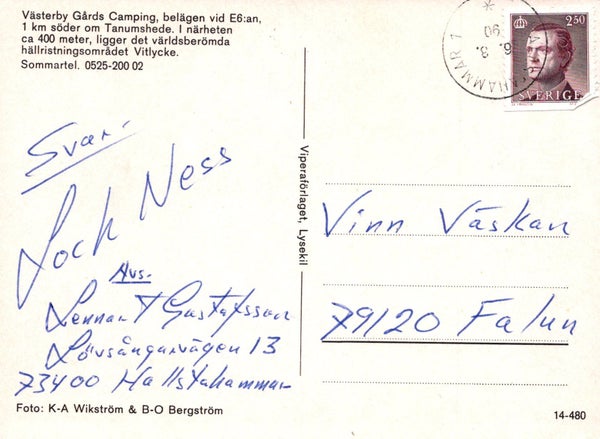 Västerby Gårds Camping, belägen vid E6:an,
1 km söder om Tanumshede. I närheten
ca 400 meter, ligger det världsberömda
hällristningsområdet Vitlycke.
Sommartel. 0525-200 02
2.50
SVERIGE
90
Svar:
Loch Ness
Avs.
Lennart Gustafsson
Lövsångarvägen 13
73400 Hallstahammar
Viperaförlaget, Lysekil
Vinn Väskan
79120 Falun
Foto: K-A Wikström & B-O Bergström
14-480